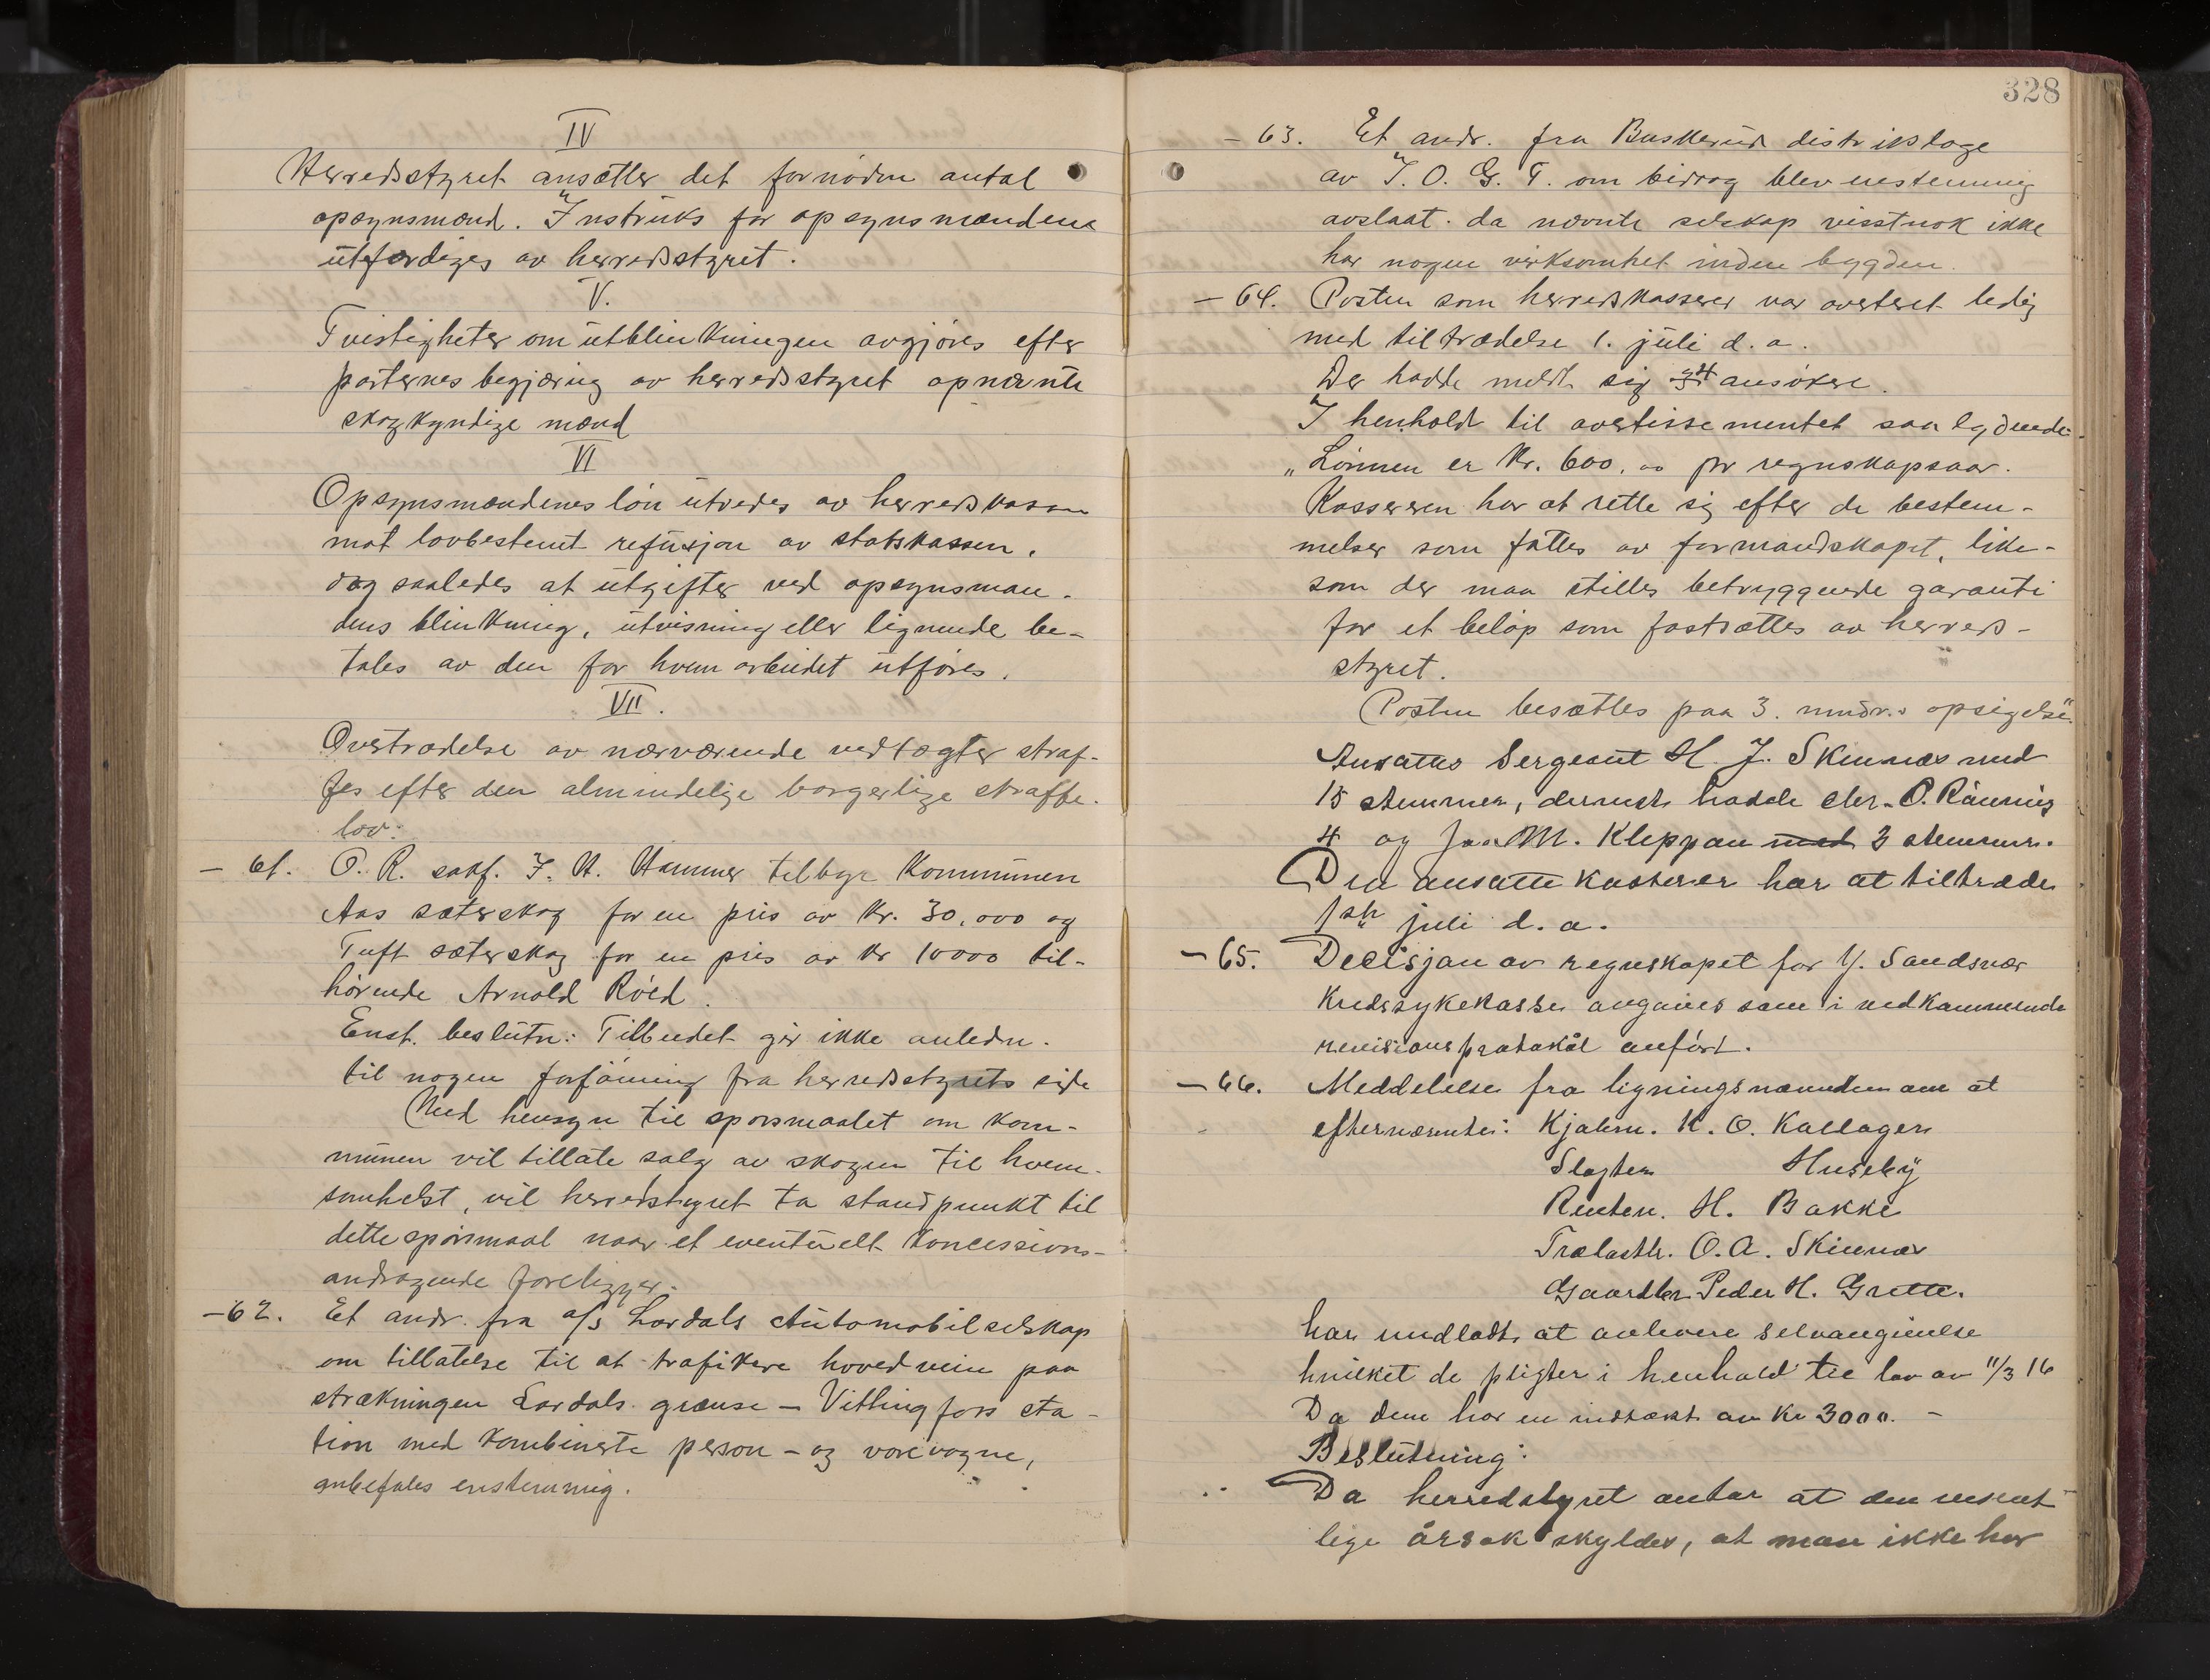 IV
Herredsstyret ansætter det fornödne antal
opsynsmænd. Instruks for opsynsmændene
utfærdiges av herredsstyret.
V.
Tvistigheter om utblinkningen avgjöres efter
parternes begjæring av herredsstyret opnævnte
skogkyndige mænd
VI
Opsynsmændenes lön utredes av herredskassen
mot lovbestemt refusjon av statskassen,
dog saaledes at utgifter ved opsynsman-
dens blinkning, utvisning eller lignende be-
tales av den for hvem arbeidet utföres.
VII.
Overtrædelse av nærværende vedtægter straf-
fes efter den almindelige borgerlige straffe-
lov.
- 61. O. R. sakf. J. H. Hammer tilbyr Kommunen
Aas sæterskog for en pris av kr. 30,000 og
Tuft sæterskog for en pris av kr 10000 til-
hörende Arnold Röed.
Enst. beslutn: Tilbudet gir ikke anledn.
til nogen forföining fra herredsstyrets side
Med hensyn til spörsmaalet om kom-
munen vil tillate salg av skogen til hvem-
somhelst, vil herredstyret ta standpunkt til
dette spörsmaal naar et eventuelt koncessions-
andragende foreligger.
- 62. Et andr. fra a/s Lardals Automobilselskap
om tillatelse til at trafikere hovedveien paa
strækningen Lardals grænse - Vittingfoss sta-
tion med kombinerte person- og varevogne,
anbefales enstemmig.
328
- 63. Et andr. fra Buskerud distriktsloge
av I. O. G. T. om bidrag blev enstemmig
avslaat. da nævnte selskap visstnok ikke
har nogen virksomhet inden bygden.
- 64. Posten som herredskasserer var avertert ledig
med tiltrædelse 1. juli d. a.
Der hadde meldt sig 24 ansökere.
I henhold til avertissementet saa lydende:
„Lönnen er Kr. 600,00 pr regnskapsaar.
Kassereren har at rette sig efter de bestem-
melser som fattes av formandskapet, like-
som der maa stilles betryggende garanti
for et belöp som fastsættes av herreds-
styret.
Posten besættes paa 3. mndr.s opsigelse".
Ansattes Sergeant H. J. Skinnæs med
15 stemmer, dernæst hadde Chr. O. Rönning
4 og Jan M. Kleppan med 3 stemmer.
Den ansatte kasserer har at tiltræde
1ste juli d. a.
- 65. Decisjon av regnskapet for Y. Sandsvær
Kredssykekasse avgaves som i vedkommende
revisionsprotokol anfört.
- 66. Meddelelse fra ligningsnævnden om at
efternævnte: Kjöbm. K. O. Kallager
Slagter Huseby
Renten. H. Bakke
Trælasth. O. A. Skinnæs
Gaardbr. Peder H. Grette.
har undladt at avlevere selvangivelse
hvilket de pligter i henhold til lov av 11/3 16
Da dem har en indtækt av Kr 3000. -
Beslutning:
Da herredstyret antar at den vesent-
lige årsak skyldes, at man ikke har